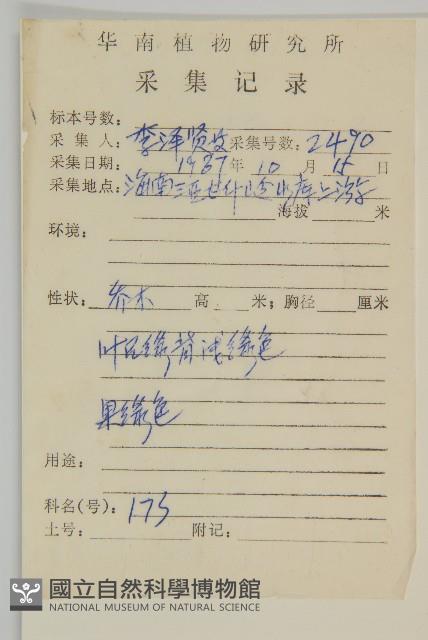 华南植物研究所
采集记录
标本号数:
采集人: 李泽贤 采集号数: 2490
采集日期: 1987年10月15日
采集地点: 海南三亚 水库上游
海拔 米
环境:
性状: 乔木 高 米; 胸径 厘米
叶 绿, 背浅绿色
果绿色
用途:
科名(号): 173
土号: 附记:
國立自然科學博物館
NATIONAL MUSEUM OF NATURAL SCIENCE